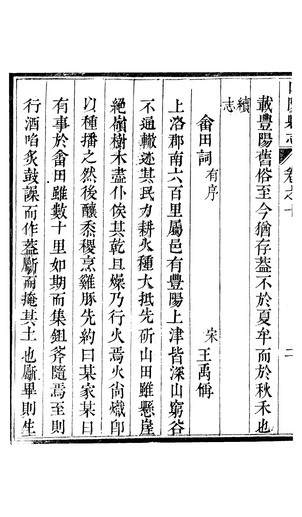 卷之十
載豐陽舊俗至今猶存蓋不於夏牟而於秋禾也
續志
畬田詞有序
宋 王禹偁
上洛郡南六百里屬邑有豐陽上津皆深山窮谷
不通轍迹其民刀耕火種大抵先斫山田雖懸崖
絕嶺樹木盡仆俟其乾且燥乃行火焉火尚熾卽
以種播之然後釀黍稷烹雞豚先約曰某家某日
有事於畬田雖數十里如期而集鉏斧隨焉至則
行酒啗炙鼓譟而作蓋斸而掩其土也斸畢則生